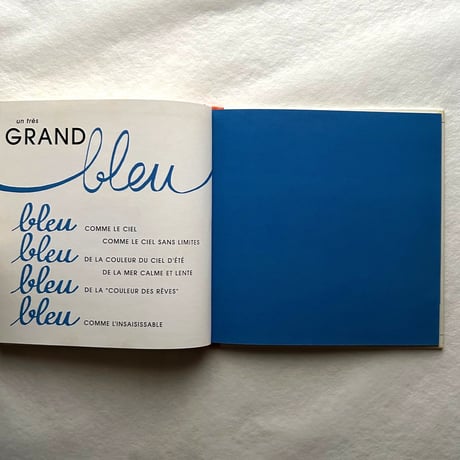 un très
GRAND bleu
bleu COMME LE CIEL
COMME LE CIEL SANS LIMITES
bleu DE LA COULEUR DU CIEL D'ÉTÉ
DE LA MER CALME ET LENTE
bleu DE LA "COULEUR DES RÊVES"
bleu COMME L'INSAISISSABLE